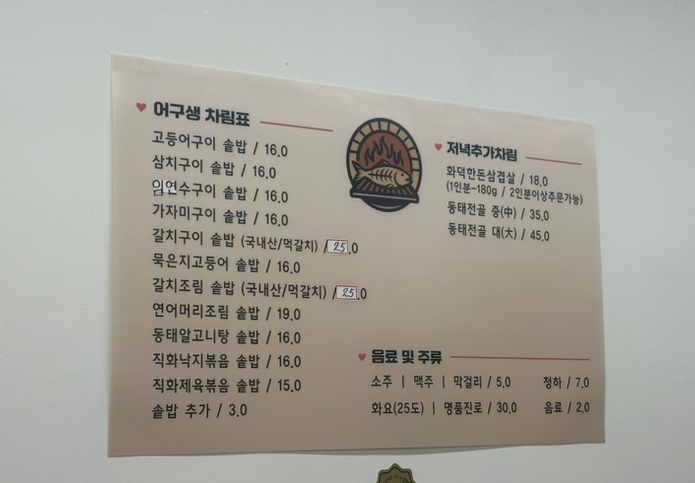 어구생 차림표
고등어구이 솥밥 / 16.0
삼치구이 솥밥 / 16.0
임연수구이 솥밥 / 16.0
가자미구이 솥밥 / 16.0
갈치구이 솥밥 (국내산/먹갈치) / 25.0
묵은지고등어 솥밥 / 16.0
갈치조림 솥밥 (국내산/먹갈치) / 25.0
연어머리조림 솥밥 / 19.0
동태알고니탕 솥밥 / 16.0
직화낙지볶음 솥밥 / 16.0
직화제육볶음 솥밥 / 15.0
솥밥 추가 / 3.0
저녁추가차림
화덕한돈삼겹살 / 18.0
(1인분-180g / 2인분이상주문가능)
동태전골 중(中) / 35.0
동태전골 대(大) / 45.0
음료 및 주류
소주 | 맥주 | 막걸리 / 5.0 청하 / 7.0
화요(25도) | 명품진로 / 30.0 음료 / 2.0